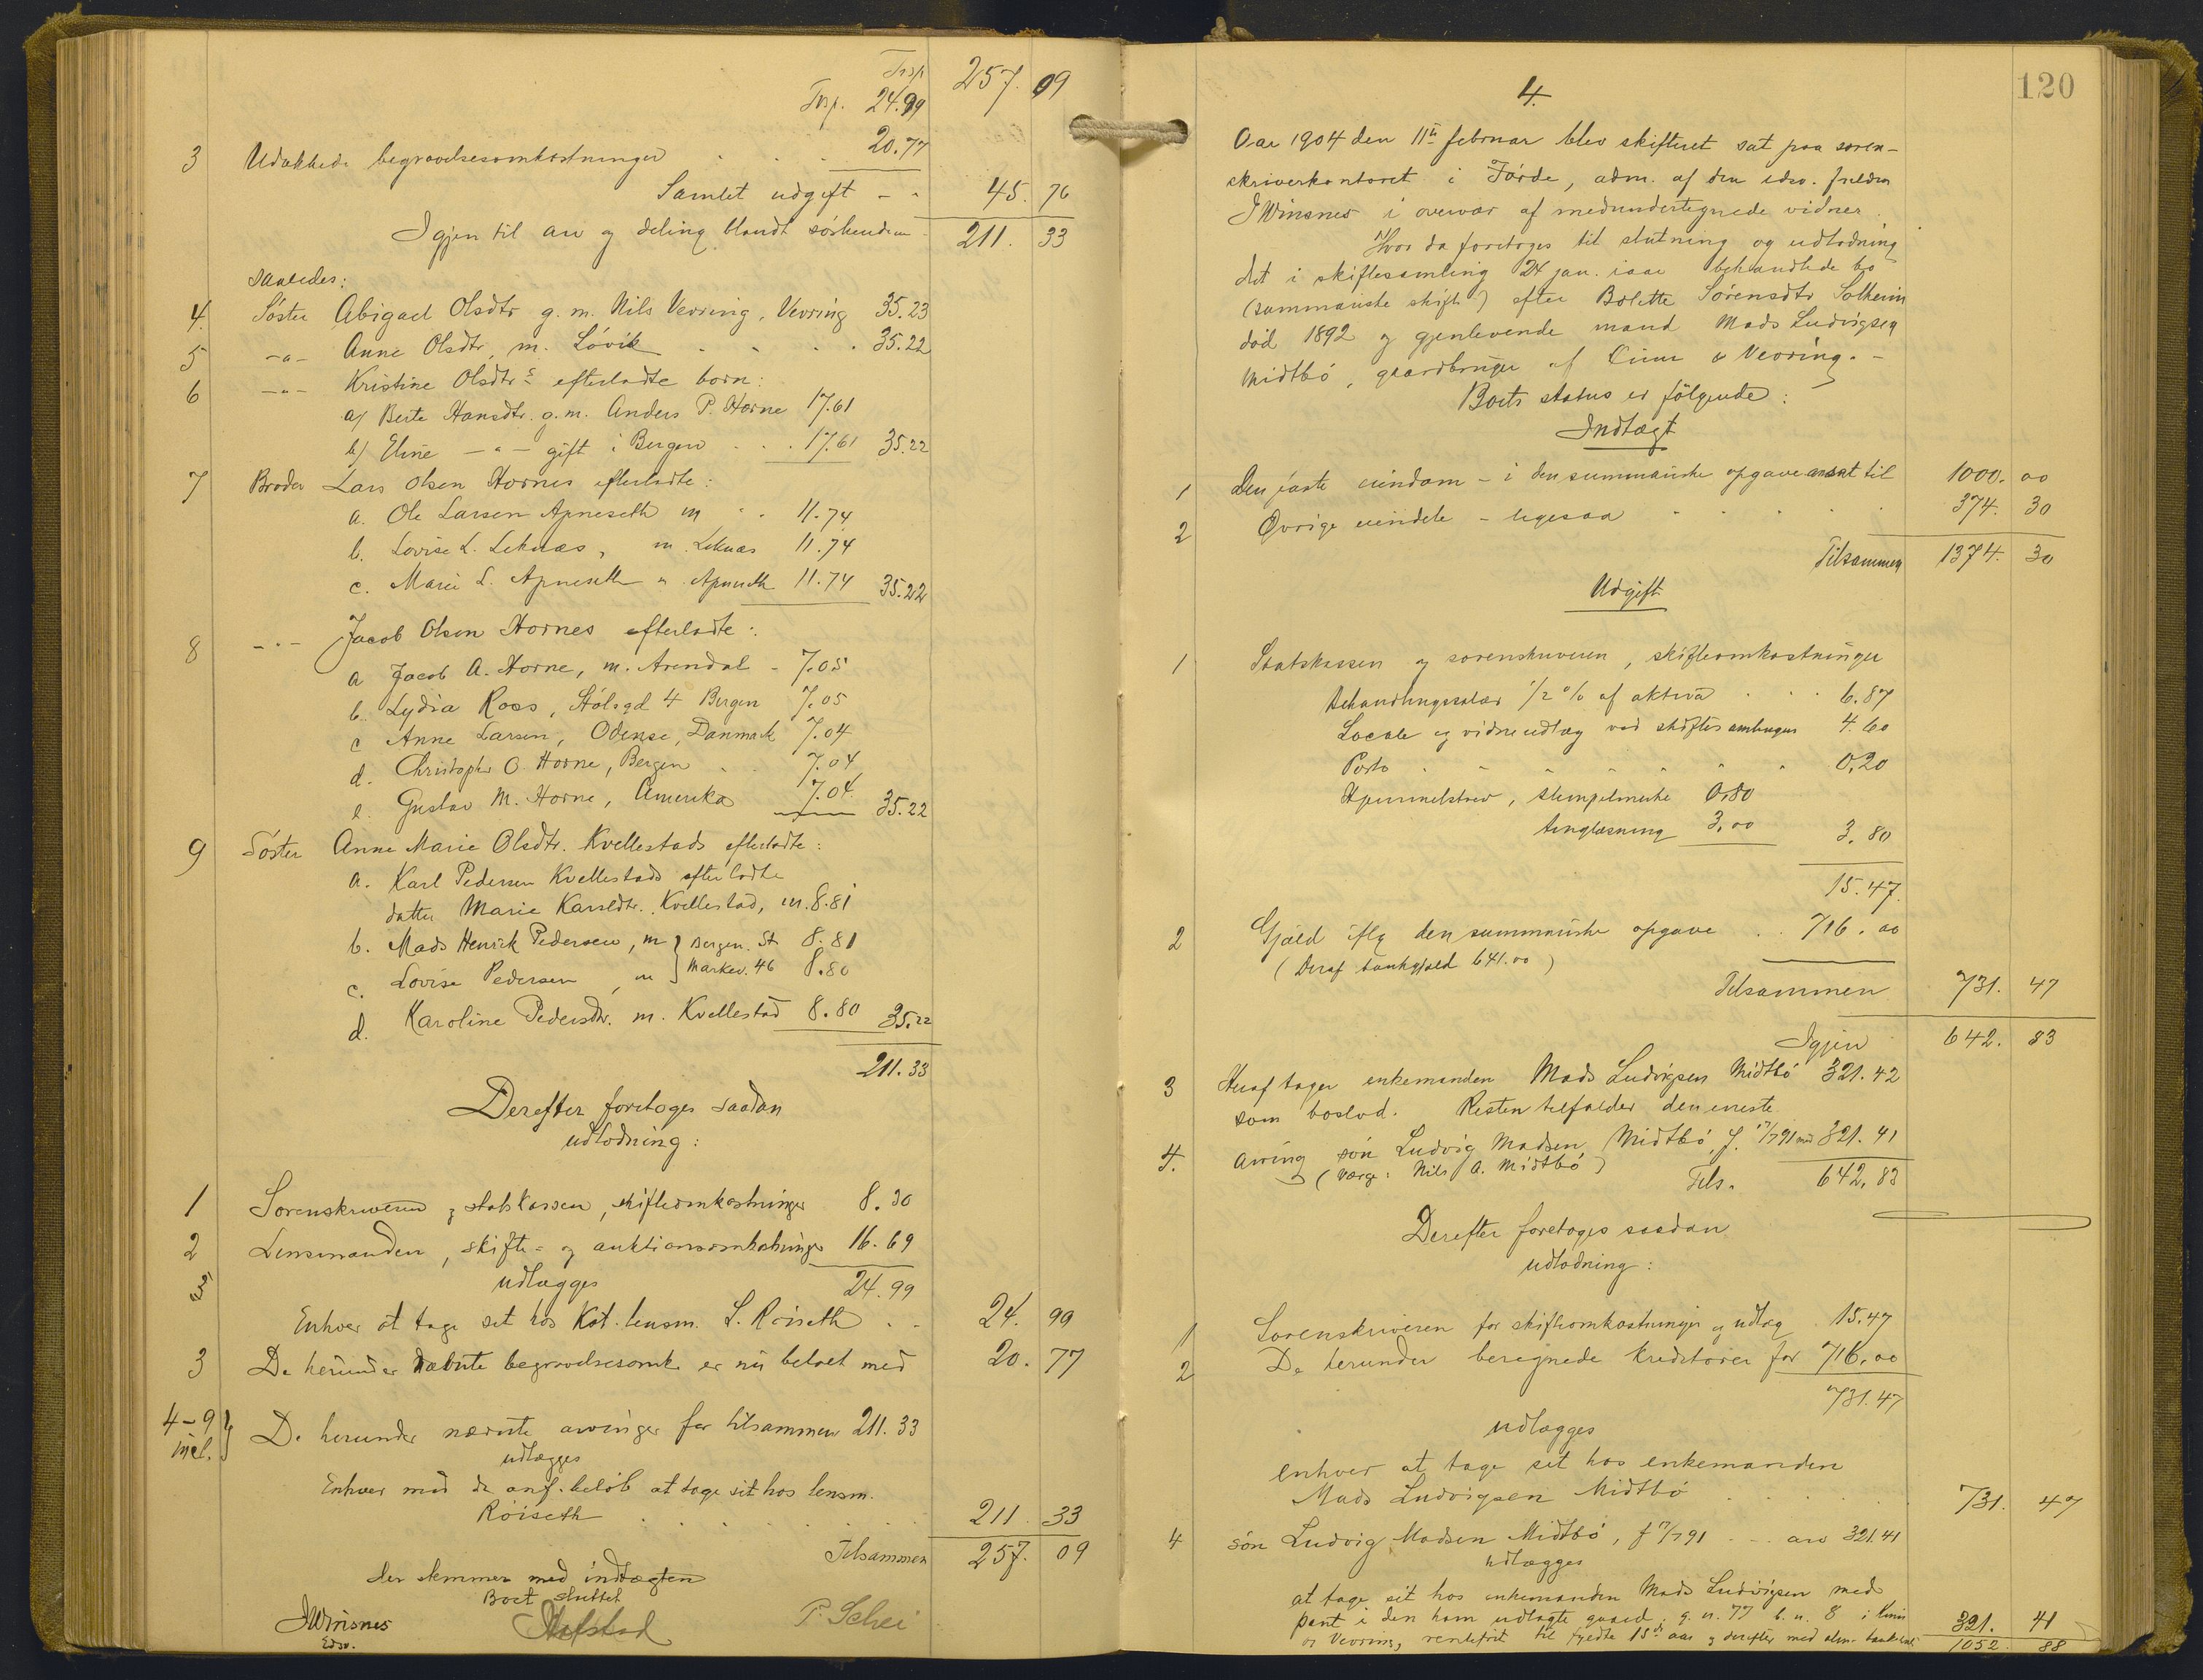 Trsp. 257. 09
Trsp. 24.99
3 Udækkede begravelsesomkostninger 20.77
Samlet udgift - - 45. 76
Igjen til arv og deling blandt söskendene 211. 33
saaledes:
4. Söster Abigael Olsdtr g. m. Nils Vevring, Vevring 35.23
5 -"- Anne Olsdtr, m. Lövik 35.22
6 -"- Kristine Olsdtrs efterladte born:
a/ Berte Hansdtr. g. m. Anders P. Horne 17.61
b/ Eline -"- gift i Bergen 17.61 35.22
7 Broder Lars Olsen Hornes efterladte:
a. Ole Larsen Apneseth m 11.74
b. Lovise L. Leknæs, m. Leknæs 11.74
c. Marie L. Apneseth m Apneseth 11.74 35.22
8 -"- Jacob Olsen Hornes efterladte:
a Jacob A. Horne, m. Arendal - 7.05
b. Lydia Roos, Stölegd 4 Bergen 7.05
c Anne Larsen, Odense, Danmark 7.04
d. Christopher O. Horne, Bergen 7.04
e. Gustav M. Horne, Amerika 7.04 35.22
9 Söster Anne Marie Olsdtr. Kvellestads efterladte:
a. Karl Pedersen Kvellestads efterladte
datter Marie Karlsdtr. Kvellestad, m. 8.81
b. Mads Henrik Pedersen, m } Bergen. St. 8.81
c. Lovise Pedersen, m } Markev. 46 8.80
d. Karoline Pedersdtr. m. Kvellestad 8.80 35.22
211.33
Derefter foretoges saadan
udlodning:
1 Sorenskriveren og statskassen, skifteomkostninger 8.30
2 Lensmanden, skifte- og auktionsomkostninger 16.69
udlægges 24.99
Enhver at tage sit hos Kst. lensm. L. Röiseth 24. 99
3 De herunder nævnte begravelsesomk. er nu betalt med 20. 77
4-9 incl. } De herunder nævnte arvinger for tilsammen 211.33
udlægges
Enhver med de anf. belöb at tage sit hos lensm.
Röiseth 211. 33
Tilsammen 257. 09
der stemmer med indtægten
Boet sluttet
JWinsnes Hafstad P. Schei
Edsv.
120
4.
Aar 1904 den 11te februar blev skifteret sat paa soren-
skriverkontoret i Förde, adm. af den edsv. fuldm.
JWinsnes i overvær af medundertegnede vidner.
Hvor da foretoges til slutning og udlodning
det i skiftesamling 24 jan. iaar behandlede bo
(summariske skifte) efter Bolette Sörensdtr Solheim
död 1892 og gjenlevende mand Mads Ludvigsen
Midtbö, gaardbruger af Kinn & Vevring. -
Boets status er fölgende:
Indtægt
1 Den faste eiendom - i den summariske opgave ansat til 1000. 00
2 Övrige eiendele - ligesaa 374. 30
Tilsammen 1374. 30
Udgift
1 Statskassen og sorenskriveren, skifteomkostninger
Behandlingssalær 1/2 % af aktiva 6.87
Locale og vidneudlæg ved skiftesamlingen 4.60
Porto 0,20
Hjemmelsbrev, stempelmerke 0,80
tinglæsning 3,00 3,80
15.47
2 Gjæld iflg den summariske opgave 716.00
(deraf bankgjæld 641.00)
Tilsammen 731. 47
Igjen 642. 83
3 Heraf tager enkemanden Mads Ludvigsen Midtbö 321.42
som boslod. Resten tilfalder den eneste
4. arving sön Ludvig Madsen Midtbö, f. 17/7 91 med 321.41
(værge: Nils A. Midtbö) Tils. 642,83
Derefter foretoges saadan
udlodning:
1 Sorenskriveren for skifteomkostninger og udlæg 15.47
2 De herunder beregnede kreditorer for 716.00
731.47
udlægges
enhver at tage sit hos enkemanden
Mads Ludvigsen Midtbö 731. 47
4 sön Ludvig Madsen Midtbö, f 17/7 91 arv 321.41
udlægges
at tage sit hos enkemanden Mads Ludvigsen med
pant i den ham udlagte gaard: g. n. 77 b. n. 8 i Kinn
og Vevring, rentefrit til fyldte 15de aar og derefter med alm. 321. 41
1052. 88